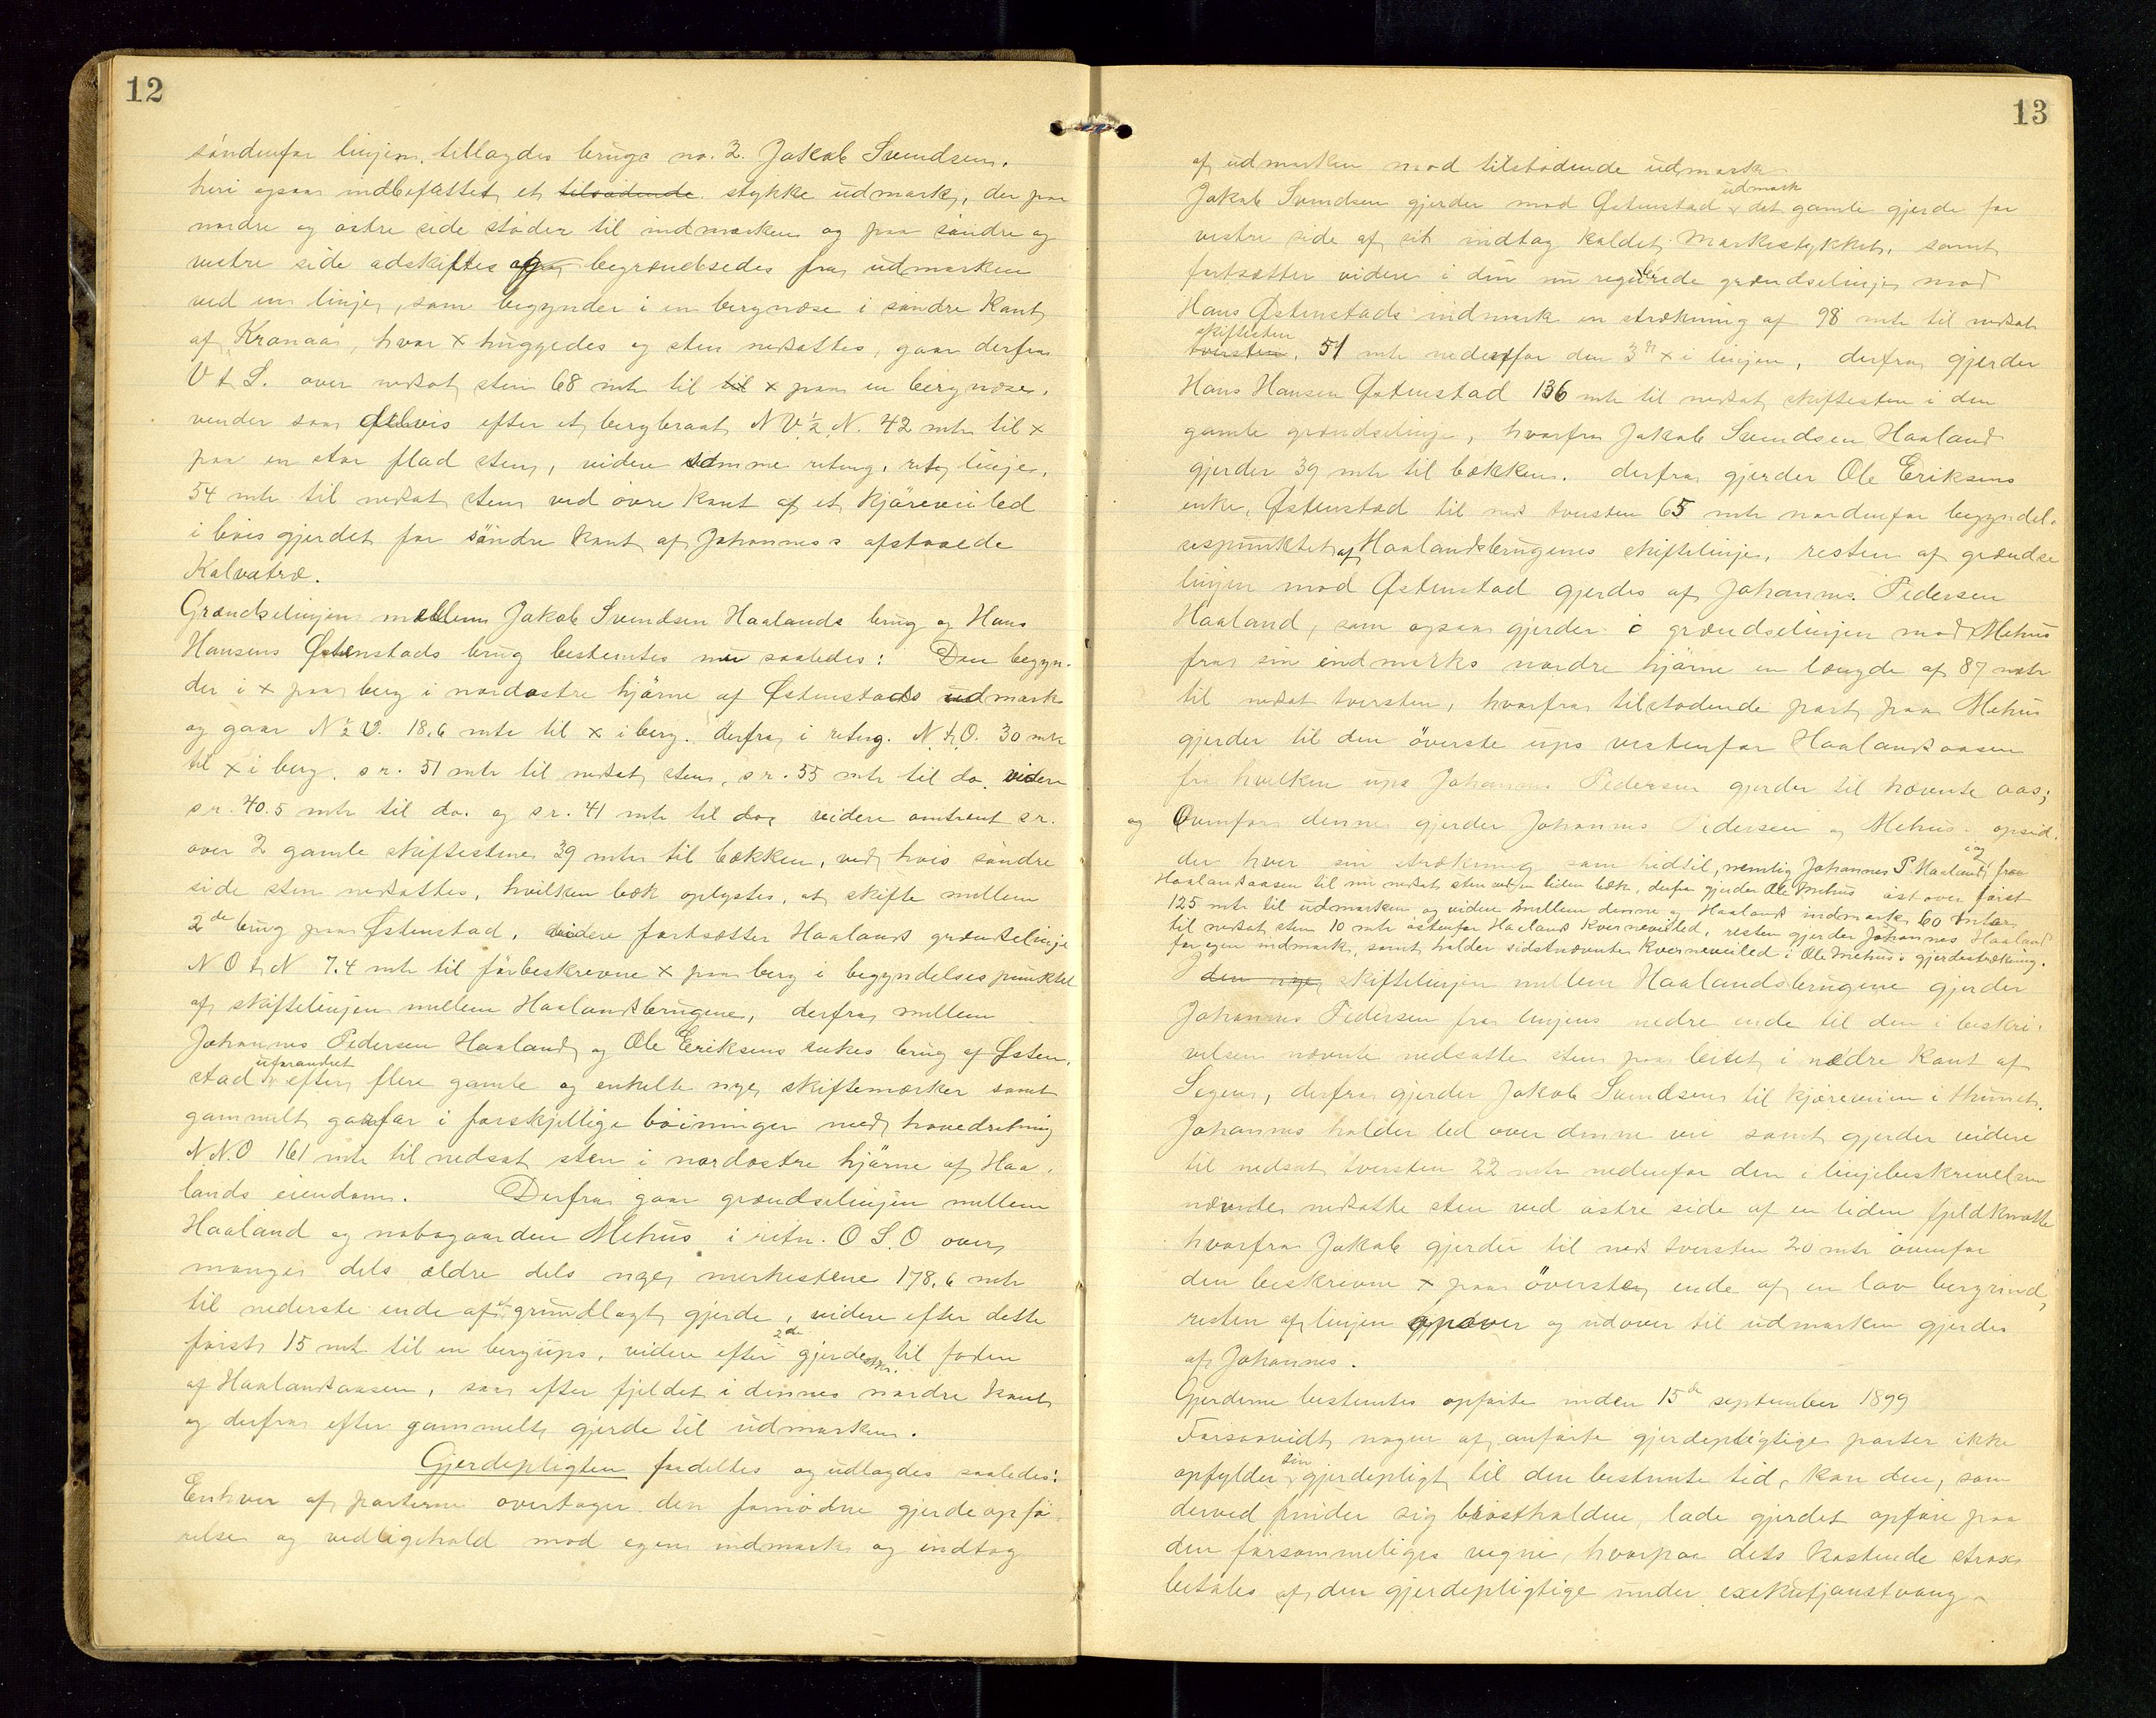 12
søndenfor linjen, tillagdes brugs no. 2. Jakob Svendsen.
heri ogsaa indbefattet et tilsødende stykke udmark, der paa
nordre og østre side støder til indmarken og paa søndre og
vestre side adskiftes og begrændsedes fra udmarken
ved en linje, som begynder i en bergnøse i søndre Kant
af Kranaas, hvor x huggedes og sten nedsattes, gaar derfra
V t S. over nedsat sten 68 mtr til til x paa en bergnøse,
vender saa delvis efter et bergbraat N V ½ N. 42 mtr til x
paa en stor flad sten, videre samme retng. ret linje,
54 mtr til nedsat sten ved øvre Kant af et Kjøreveiled
i bøis gjerdet for søndre Kant af Johannes's afstaaede
Kalvatræ.
Grændselinjen mellem Jakob Svendsen Haalands brug og Hans
Hansens Østenstads brug bestemtes nu saaledes: Den begyn-
der i x paa berg i nordøstre hjørne af Østenstads udmark
og gaar N ½ V. 18,6 mtr til x i berg. derfra i retng. N.t.O. 30 mtr
til x i berg. s r. 51 mtr til nedsat sten, s r. 55 mtr til do. videre
s r. 40.5 mtr til do. og s r. 41 mtr til do, videre omtrent s r.
over 2 gamle skiftestene 39 mtr til bækken, ved hvis søndre
side sten nedsattes, hvilken bæk oplystes, at skifte mellem
2de brug paa Østenstad, videre fortsætter Haaland grændselinje
N O t N 7.4 mtr til førbeskrevne x paa berg i begyndelsespunktet
af skiftelinjen mellem Haalandsbrugene, derfra mellem
Johannes Pedersen Haaland og Ole Eriksens enkes brug af Østen-
stad uforandret efter flere gamle og enkelte nye skiftemærker samt
gammelt garfar i forskjellige bøininger med hovedretning
N.N.O 161 mtr til nedsat sten i nordøstre hjørne af Haa-
lands eiendom. Derfra gaar grændselinjen mellem
Haaland og nabogaarden Mehus i retn. O S.O over
mange dels ældre dels nye merkestene 178,6 mtr
til nederste ende af et grundlagt gjerde, videre efter dette
først 15 mtr til en bergups, videre efter 2de gjerdestkr. til foden
af Haalandsaasen, saa efter fjeldet i dennes nordre Kant
og derfra efter gammelt gjerde til udmarken.
Gjerdepligten fordeltes og udlagdes saaledes:
Enhver af parterne overtager den fornødne gjerdeopfø-
relse og vedligehold mod egen indmark og indtag
13
af udmarken mod tilstødende udmark
Jakob Svendsen gjerder mod Østenstad udmark det gamle gjerde for
vestre side af sit indtag kaldet Markestykket, samt
fortsætter videre i den nu regulerede grændselinje mod
Hans Østenstads indmark en strækning af 98 mtr til nedsat
skiftesten tversten, 51 mtr nedenfor den 3die x i linjen, derfra gjerder
Hans Hansen Østenstad 136 mtr til nedsat skiftesten i den
gamle grændselinje, hvorfra Jakob Svendsen Haaland
gjerder 39 mtr til bækken. derfra gjerder Ole Eriksens
enke, Østenstad til neds tversten 65 mtr nordenfor begyndel-
sespunktet af Haalandsbrugenes skiftelinje, resten af grændse
linjen mod Østenstad gjerdes af Johannes Pedersen
Haaland, som ogsaa gjerder i grændselinjen mod Mehus
fra sin indmarks nordre hjørne en længde af 87 mtr
til nedsat tversten, hvorfra tilstødende part paa Mehus
gjerder til den øverste ups vestenfor Haalandsaasen
fra hvilken ups Johannes Pedersen gjerder til nævnte aas;
og Ovenfor dennes gjerder Johannes Pedersen og Mehus opsid-
der hver sin strækning som hidtil, nemlig Johannes P. Haaland, fra
Haalandsaasen til nu nedsat sten ved en liden bæk, derfra gjerder Ole Mehus østover først
125 mtr til udmarken og videre mellem denne og Haaland indmark 60 mtr
til nedsat sten 10 mtr østenfor Haaland Kverneveiled, resten gjerder Johannes Haaland
for egen indmark, samt holder sidstnævnte Kverneveiled i Ole Mehus's gjerdestrækning.
I den nye skiftelinjen mellem Haalandsbrugene gjerder
Johannes Pedersen fra linjens nedre ende til den i beskri-
velsen nævnte nedsatte sten paa leitet i nedre Kant af
Segen, derfra gjerder Jakob Svendsen til kjøreveien i thunet.
Johannes holder led over denne vei samt gjerder videre
til nedsat tversten 22 mtr nedenfor den i linjebeskrivelsen
nævnte nedsatte sten ved østre side af en liden fjeldknatte
hvorfra Jakob gjerder til neds tversten 20 mtr ovenfor
den beskrevne x paa øverste ende af en lav bergrind,
resten af linjen opover og udover til udmarken gjerdes
af Johannes.
Gjerderne bestemtes opførte inden 15de september 1899
Forsaavidt nogen af anførte gjerdepligtige parter ikke
opfylder sin gjerdepligt til den bestemte tid, kan den, som
derved finder sig brøstholden, lade gjerdet opføre paa
den forsømmeliges vegne, hvorpaa dets Kostende strax
betales af den gjerdepligtige under exekutjonstvang.